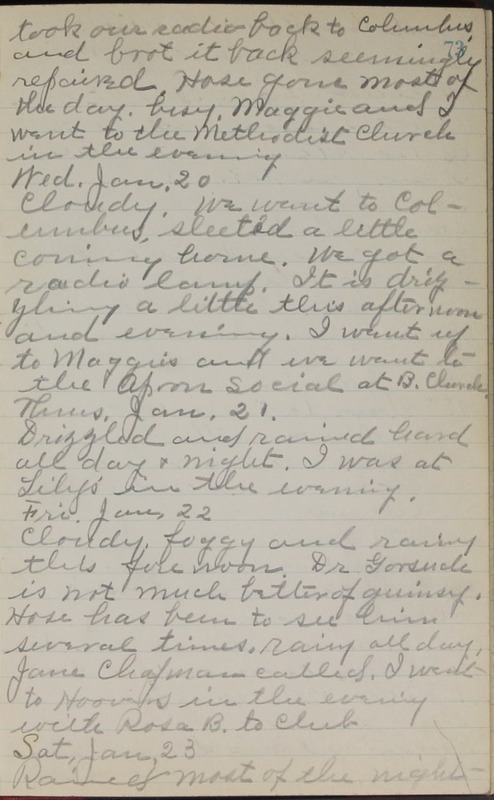 took our radio back to Columbus
73
and brot it back seemingly
repaired. Hose gone most of
the day. busy. Maggie and I
went to the Methodist Church
in the evening
Wed. Jan. 20
Cloudy. We went to Col-
umbus, sleeted a little
coming home. We got a
radio lamp. It is driz-
zling a little this afternoon
and evening. I went up
to Maggies and we went to
the Apron Social at B. Church.
Thurs. Jan. 21.
Drizzled and rained hard
all day & night. I was at
Lily's in the evening.
Fri. Jan. 22
Cloudy, foggy and rainy
this fore noon. Dr Gorsuch
is not much better of quinsy.
Hose has been to see him
several times. rainy all day,
Jane Chapman called. I went
to Hoovers in the evening
with Rosa B. to Club
Sat, Jan, 23
Rained most of the night